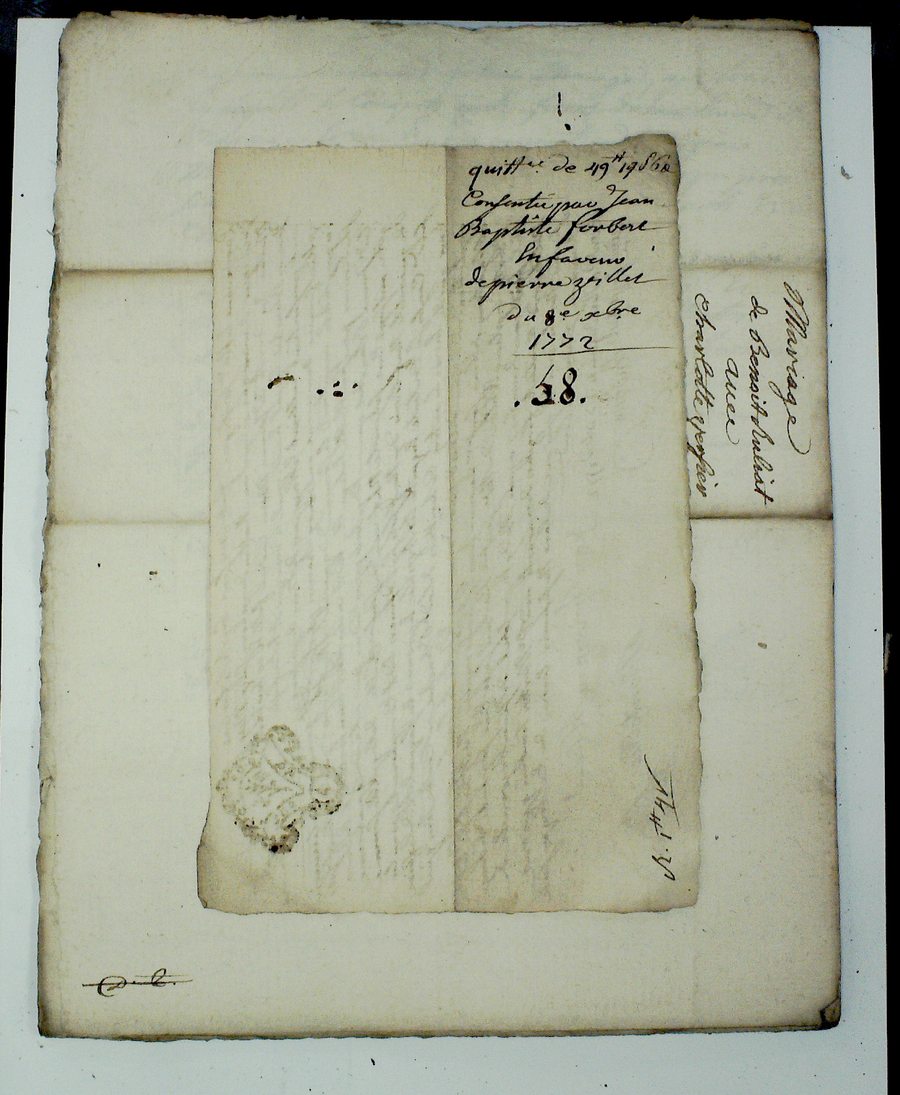 quitt.ce de 49tt 19s 6d
Consentie par Jean
Baptiste forbert
En faveur
de pierre zeiller
du 8e xbre
1772
.48.
Mariage
de Benoit
avec
Charlotte